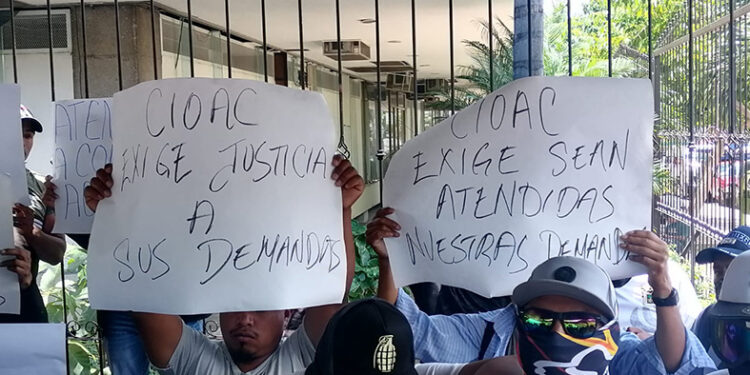 CIOAC
EXIGE JUSTICIA
A
SUS DEMANDAS
CIOAC
EXIGE SEAN
ATENDIDAS
NUESTRAS